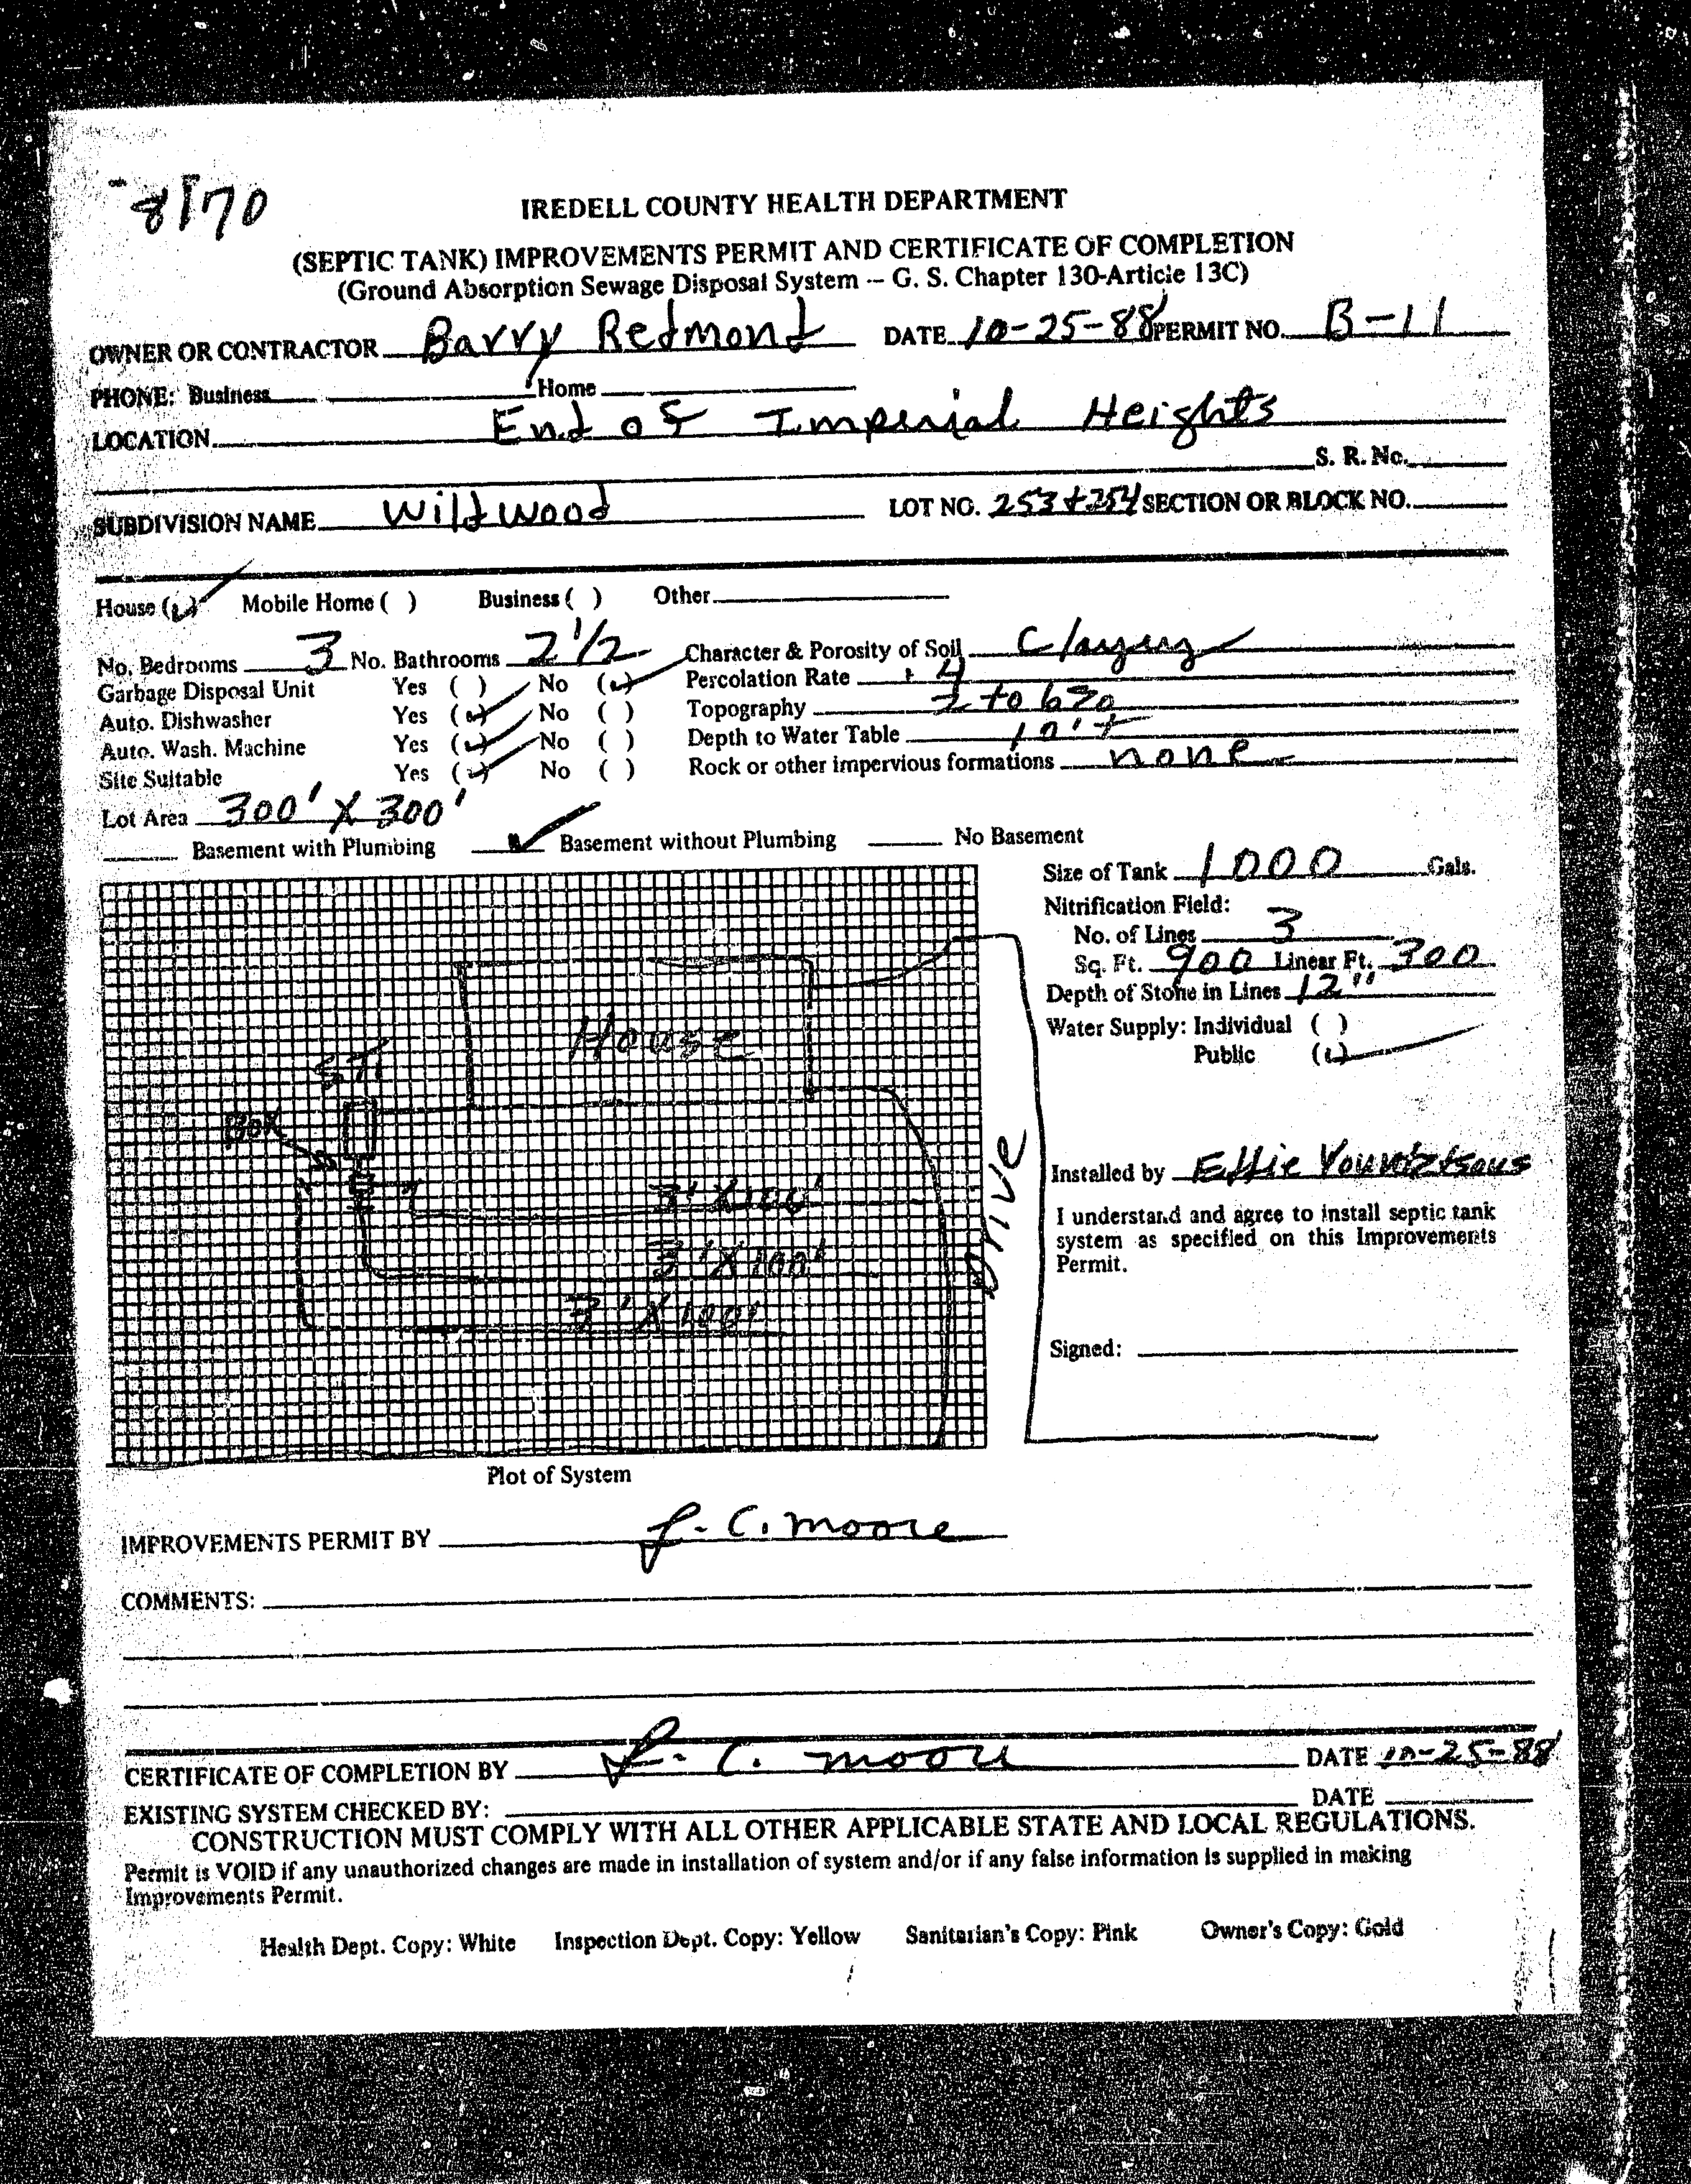 8170
IREDELL COUNTY HEALTH DEPARTMENT
(SEPTIC TANK) IMPROVEMENTS PERMIT AND CERTIFICATE OF COMPLETION
(Ground Absorption Sewage Disposal System -- G. S. Chapter 130-Article 13C)
OWNER OR CONTRACTOR Barry Redmond DATE 10-25-88 PERMIT NO. B-11
PHONE: Business Home
LOCATION End of Imperial Heights
S. R. No.
SUBDIVISION NAME Wildwood LOT NO. 253 + 254 SECTION OR BLOCK NO.
House (✓) Mobile Home ( ) Business ( ) Other
No. Bedrooms 3 No. Bathrooms 2 1/2 Character & Porosity of Soil Clayey
Garbage Disposal Unit Yes ( ) No (✓) Percolation Rate 4
Auto. Dishwasher Yes (✓) No ( ) Topography 2 to 6%
Auto. Wash. Machine Yes (✓) No ( ) Depth to Water Table 10'+
Site Suitable Yes (✓) No ( ) Rock or other impervious formations none
Lot Area 300' X 300'
Basement with Plumbing ✓ Basement without Plumbing No Basement
Size of Tank 1000 Gals.
Nitrification Field:
No. of Lines 3
Sq. Ft. 900 Linear Ft. 300
Depth of Stone in Lines 12"
Water Supply: Individual ( )
Public (✓)
House
Box
Drive
3' X 100'
3' X 100'
3' X 100'
Installed by Effie
I understand and agree to install septic tank
system as specified on this Improvements
Permit.
Signed:
Plot of System
IMPROVEMENTS PERMIT BY L. C. Moore
COMMENTS:
CERTIFICATE OF COMPLETION BY L. C. Moore DATE 10-25-88
EXISTING SYSTEM CHECKED BY: DATE
CONSTRUCTION MUST COMPLY WITH ALL OTHER APPLICABLE STATE AND LOCAL REGULATIONS.
Permit is VOID if any unauthorized changes are made in installation of system and/or if any false information is supplied in making
Improvements Permit.
Health Dept. Copy: White Inspection Dept. Copy: Yellow Sanitarian's Copy: Pink Owner's Copy: Gold